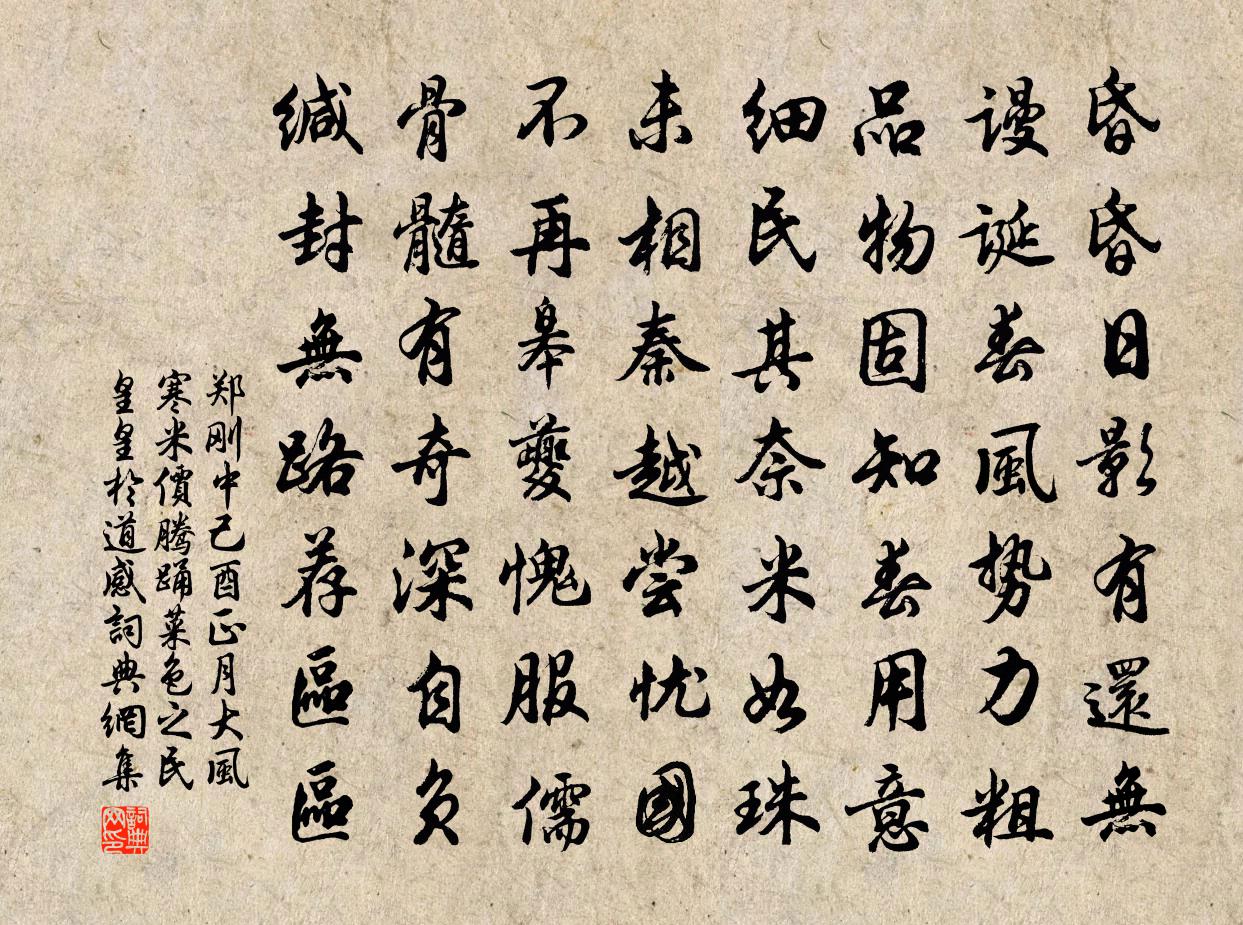 昏昏日影有還無
谩诞春風势力粗
品物固知春用意
细民其奈米如珠
未相秦越尝忧國
不再皋夔愧服儒
骨髓有奇深自负
缄封無路荐區區
郑刚中己酉正月大風
寒米價腾踊菜色之民
皇皇於道感詞典網集
詞典
网印